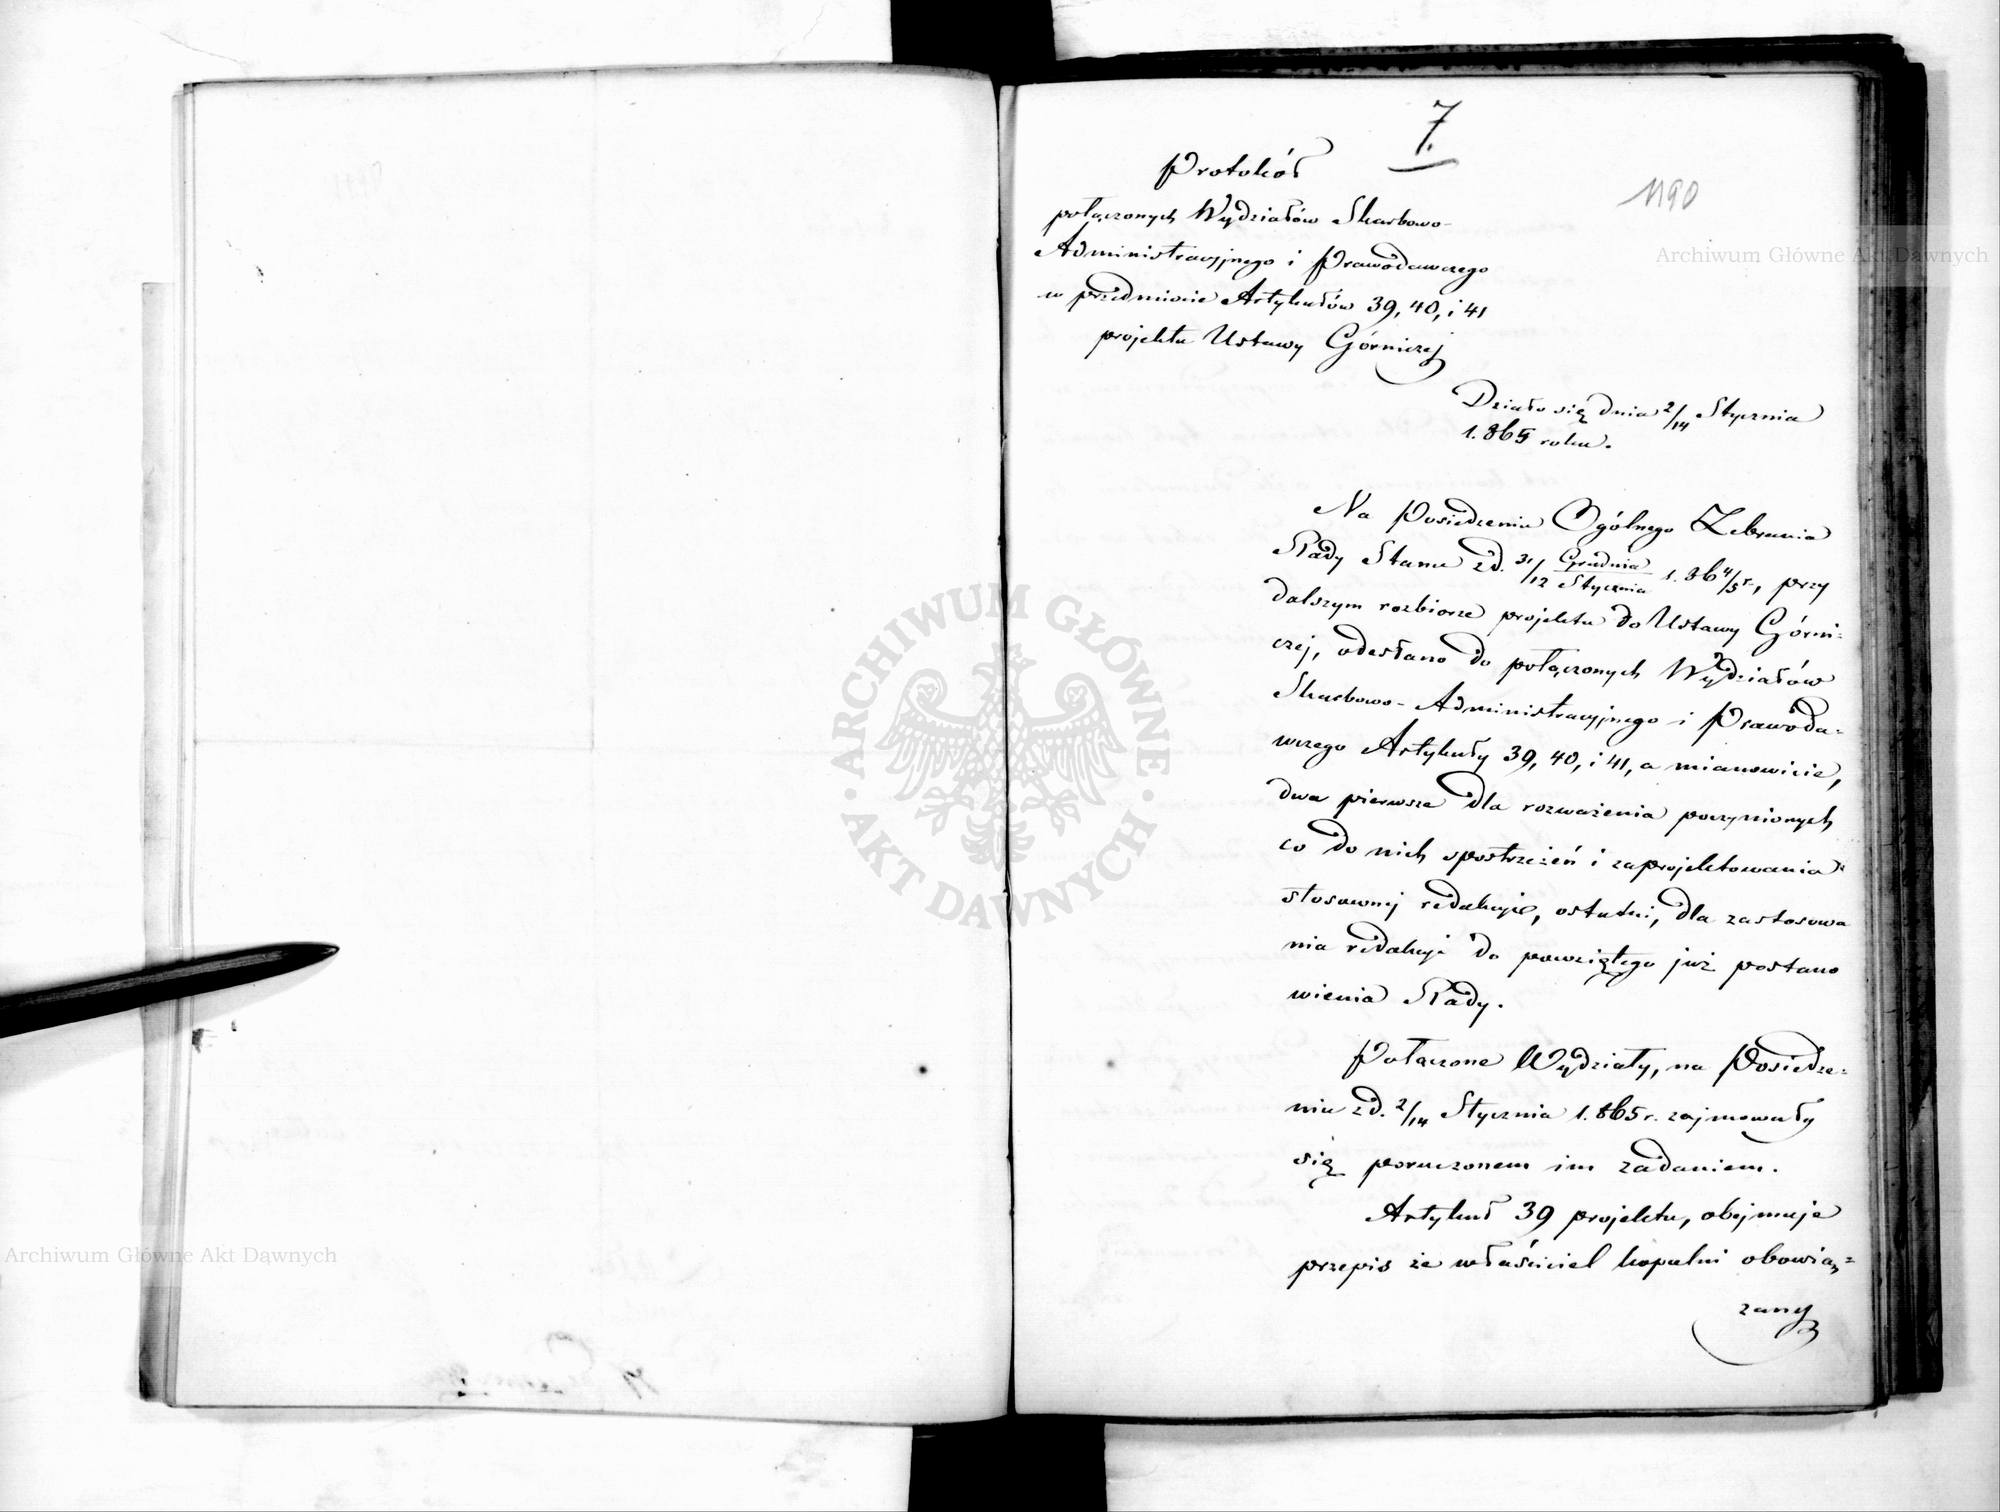 7.
1190
Protokół
połączonych Wydziałów Skarbowo-
Administracyjnego i Prawodawczego
w przedmiocie Artykułów 39, 40, i 41
projektu Ustawy Górniczej
Działo się dnia 2/14 Stycznia
1.865 roku.
Na Posiedzeniu Ogólnego Zebrania
Rady Stanu z d. 31/12 Grudnia/Stycznia 1.864/5 r., przy
dalszym rozbiorze projektu do Ustawy Górni=
czej, odesłano do połączonych Wydziałów
Skarbowo-Administracyjnego i Prawoda=
wczego Artykuły 39, 40, i 41, a mianowicie,
dwa pierwsze dla rozważenia poczynionych
co do nich spostrzeżeń i zaprojektowania
stosownej redakcyi, ostatni, dla zastosowa
nia redakcyi do powziętego już postano
wienia Rady.
Połączone Wydziały, na Posiedze=
niu z d. 2/14 Stycznia 1.865 r. zajmowały
się poruczonem im zadaniem.
Artykuł 39 projektu, obejmuje
przepis że właściciel kopalni obowią=
zany
Archiwum Główne Akt Dawnych
Archiwum Główne Akt Dawnych
ARCHIWUM GŁÓWNE
AKT DAWNYCH